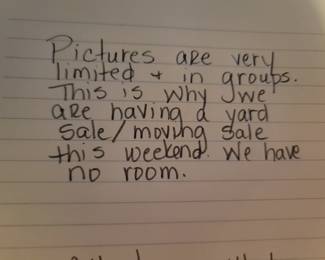 Pictures are very
limited + in groups.
This is why we
are having a yard
sale/moving sale
this weekend. We have
no room.